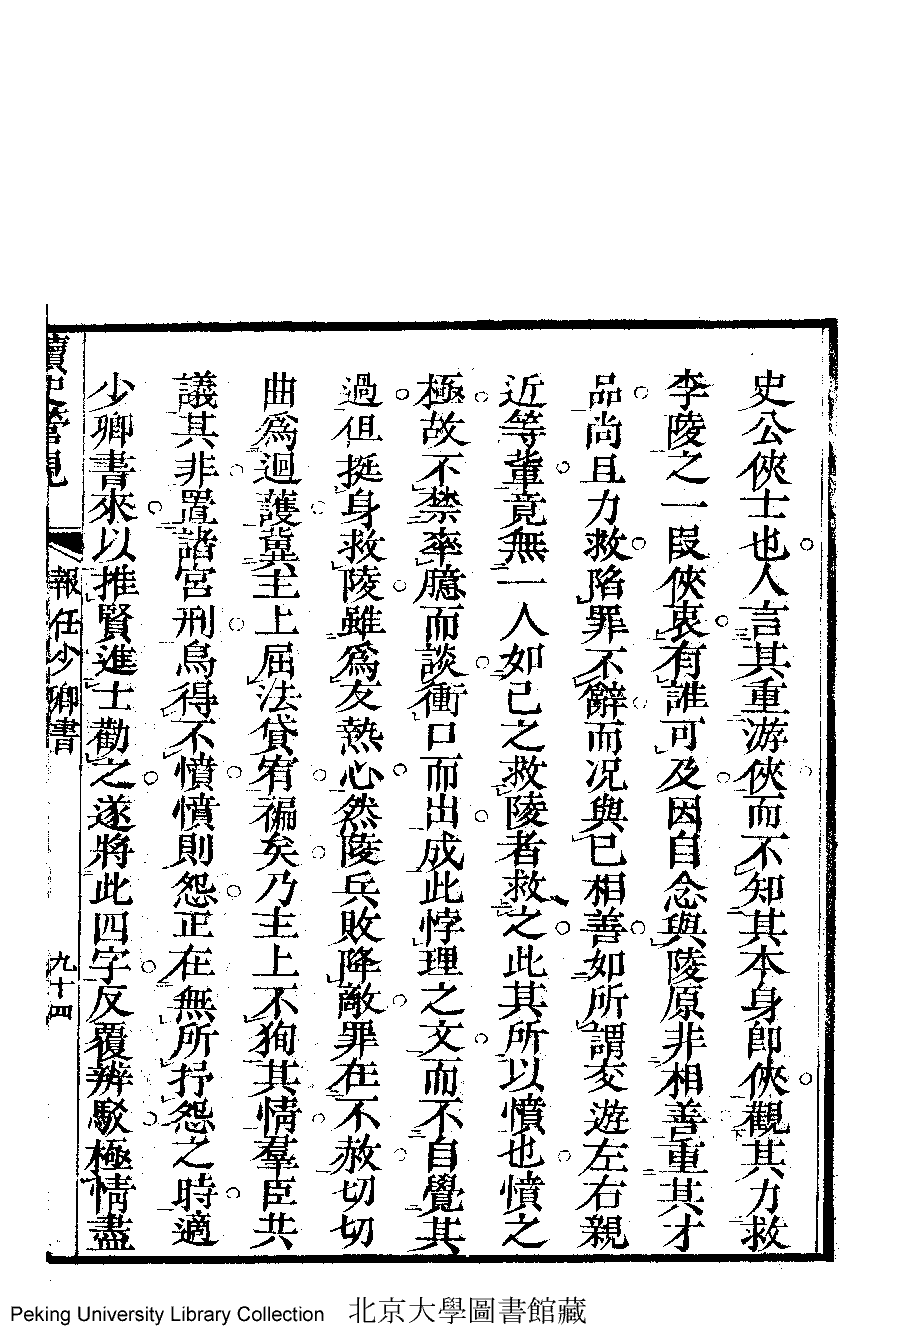 史公俠士也人言其重游俠而不知其本身卽俠觀其力救
李陵之一段俠衷有誰可及因自念與陵原非相善重其才
品尚且力救陷罪不辭而况與已相善如所謂交遊左右親
近等輩竟無一人如已之救陵者救之此其所以憤也憤之
極故不禁率臆而談衝口而出成此悖理之文而不自覺其
過但挺身救陵雖爲友熱心然陵兵敗降敵罪在不赦切切
曲爲迴護冀主上屈法貸宥褊矣乃主上不狥其情羣臣共
議其非置諸宮刑烏得不憤憤則怨正在無所抒怨之時適
少卿書來以推賢進士勸之遂將此四字反覆辨駁極情盡
讀史管見
報任少卿書
九十四
Peking University Library Collection 北京大學圖書館藏